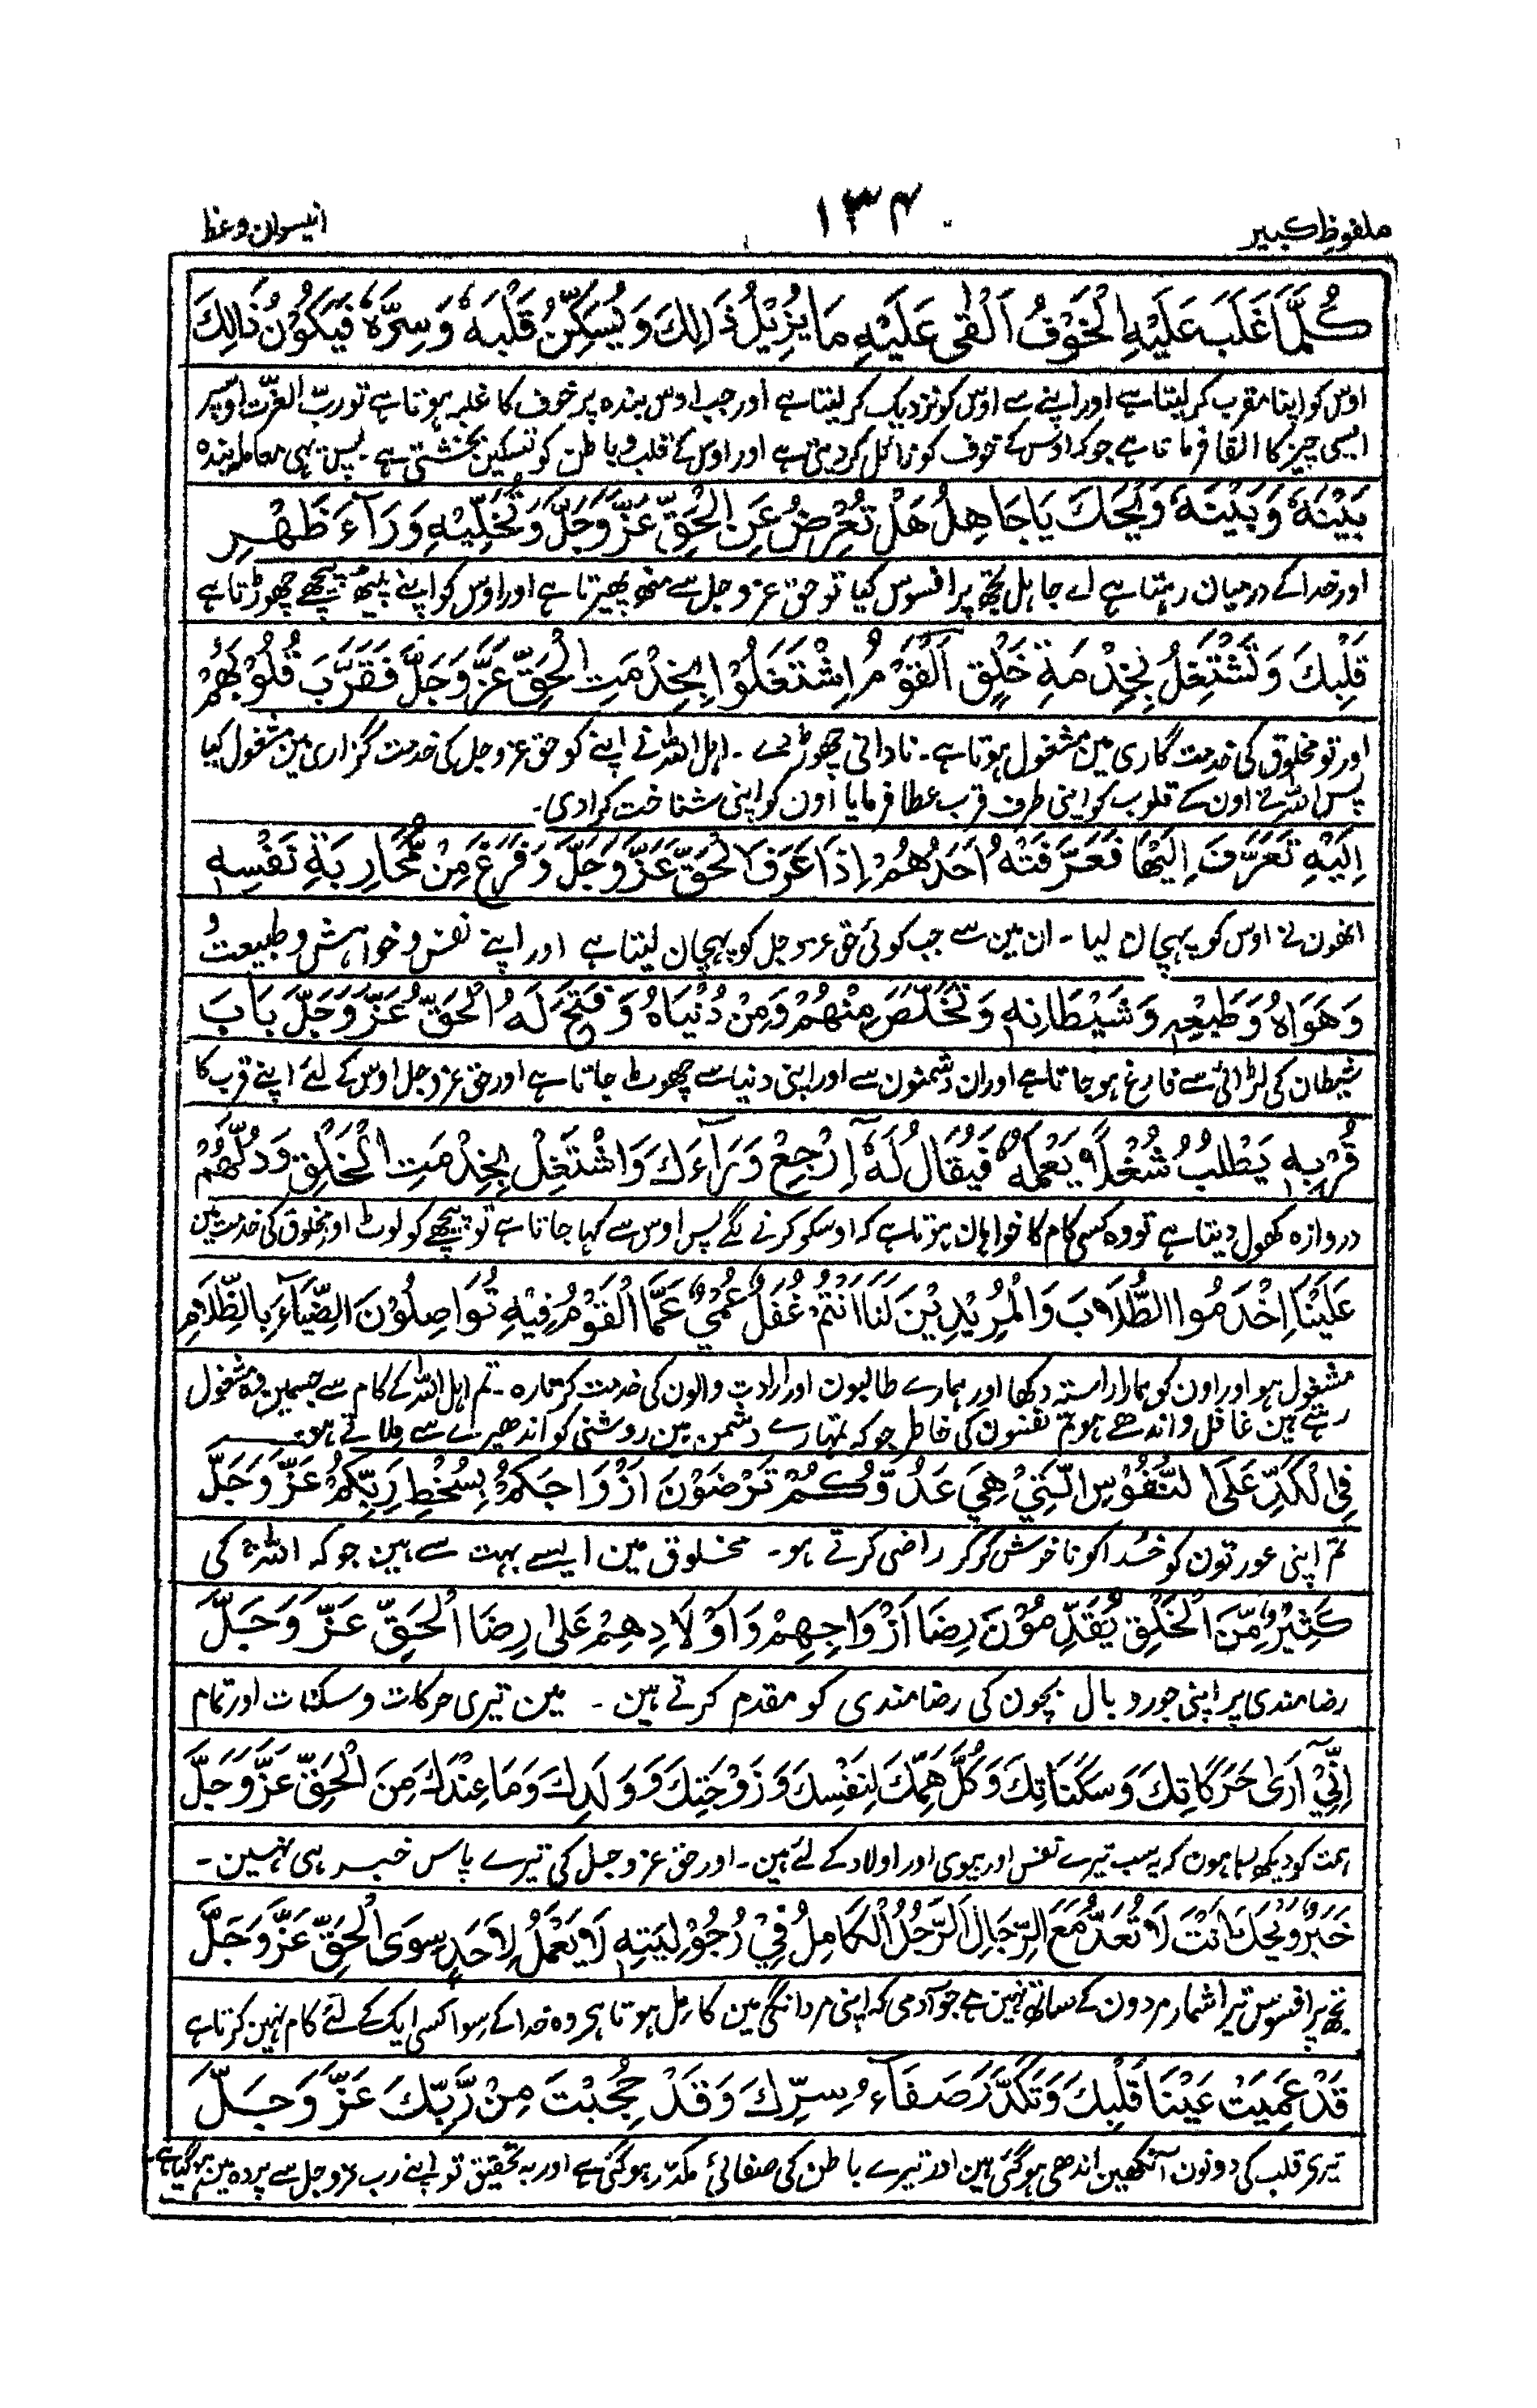 ملفوظِ کبیر
۱۳۴
انیسوان وعظ
كُلَّمَا غَلَبَ عَلَيْهِ الْخَوْفُ اَلْقٰى عَلَيْهِ مَا يُزِيْلُ ذٰلِكَ وَيُسَكِّنُ قَلْبَهٗ وَسِرَّهٗ فَيَكُوْنُ ذٰلِكَ
اوس کو اپنا مقرب کر لیتا ہے اور اپنے سے اوس کو نزدیک کر لیتا ہے اور جب اوس بندہ پر خوف کا غلبہ ہوتا ہے تو رب العزت اوسپر
ایسی چیز کا القا فرماتا ہے جو کہ اوس کے خوف کو زائل کر دیتی ہے اور اوس کے قلب و باطن کو تسکین بخشتی ہے ۔ پس یہی معاملہ بندہ
بَيْنَهٗ وَبَيْنَهٗ وَيْحَكَ يَا جَاهِلُ هَلْ تُعْرِضُ عَنِ الْحَقِّ عَزَّ وَجَلَّ وَتُخَلِّيْهِ وَرَآءَ ظَهْرِ
اور خدا کے درمیان رہتا ہے اے جاہل تجھ پر افسوس کیا تو حق عزوجل سے منھ پھیرتا ہے اور اوس کو اپنے پیٹھ پیچھے چھوڑتا ہے
قَلْبِكَ وَتَشْتَغِلُ بِخِدْمَةِ خَلْقٍ اَلْقَوْمُ اِشْتَغَلُوْا بِخِدْمَتِ الْحَقِّ عَزَّ وَجَلَّ فَقَرَّبَ قُلُوْبَهُمْ
اور تو مخلوق کی خدمت گاری مین مشغول ہوتا ہے ۔ نادانی چھوڑ دے ۔ اہل اللہ نے اپنے کو حق عزوجل کی خدمت گزاری مین مشغول کیا
پس اللہ نے اون کے قلوب کو اپنی طرف قرب عطا فرمایا اون کو اپنی شناخت کرا دی ۔
اِلَيْهِ تَعَرَّفَ اِلَيْهَا فَعَرَفَتْهُ اَحَدُهُمْ اِذَا عَرَفَ الْحَقَّ عَزَّ وَجَلَّ وَفَرَغَ مِنْ مُّحَارِبَةِ نَفْسِهٖ
انھون نے اوس کو پہچان لیا ۔ ان مین سے جب کوئی حق عزوجل کو پہچان لیتا ہے اور اپنے نفس و خواہش و طبیعت و
وَهَوَاهُ وَطَبْعِهٖ وَشَيْطَانِهٖ وَتَخَلَّصَ مِنْهُمْ وَمِنْ دُنْيَاهُ وَفَتَحَ لَهُ الْحَقُّ عَزَّ وَجَلَّ بَابَ
شیطان کی لڑائی سے فارغ ہو جاتا ہے اور ان دشمنون سے اور اپنی دنیا سے چھوٹ جاتا ہے اور حق عزوجل اوس کے لئے اپنے قرب کا
قُرْبِهٖ يَطْلُبُ شُغْلًا يَعْمَلُهٗ فَيُقَالُ لَهٗ اِرْجِعْ وَرَآءَكَ وَاشْتَغِلْ بِخِدْمَتِ الْخَلْقِ وَدُلَّهُمْ
دروازہ کھول دیتا ہے تو وہ کسی کام کا خواہان ہوتا ہے کہ اوسکو کرنے لگے پس اوس سے کہا جاتا ہے تو پیچھے کو لوٹ اور مخلوق کی خدمت مین
عَلَيْنَا اِخْدَمُوا الطُّلَّابَ وَالْمُرِيْدِيْنَ لَنَا اَنْتُمْ غُفُلٌ عُمْيٌ عَمَّا الْقَوْمُ فِيْهِ تُوَاصِلُوْنَ الضِّيَآءَ بِالظَّلَامِ
مشغول ہو اور اون کو ہمارا راستہ دکھا اور ہمارے طالبون اور ارادت والون کی خدمت کرتا رہ ۔ تم اہل اللہ کے کام سے جسمین وہ مشغول
رہتے ہین غافل و اندھے ہو تم نفسون کی خاطر جو کہ تمہارے دشمن ہین روشنی کو اندھیرے سے ملاتے ہو ۔
فِي الْكَدِّ عَلَى النُّفُوْسِ الَّتِيْ هِيَ عَدُوُّكُمْ تَرْضَوْنَ اَزْوَاجَكُمْ بِسُخْطِ رَبِّكُمْ عَزَّ وَجَلَّ
تم اپنی عورتون کو خدا کو ناخوش کر کر راضی کرتے ہو ۔ مخلوق مین ایسے بہت سے ہین جو کہ اللہ کی
كَثِيْرٌ مِّنَ الْخَلْقِ يُقَدِّمُوْنَ رِضَا اَزْوَاجِهِمْ وَاَوْلَادِهِمْ عَلٰى رِضَا الْحَقِّ عَزَّ وَجَلَّ
رضامندی پر اپنی جورو و بال بچون کی رضامندی کو مقدم کرتے ہین ۔ مین تیری حرکات و سکنات اور تمام
اِنِّيْ اَرٰى حَرَكَاتِكَ وَسَكَنَاتِكَ وَكُلَّ هَمِّكَ لِنَفْسِكَ وَزَوْجَتِكَ وَوَلَدِكَ وَمَا عِنْدَكَ مِنَ الْحَقِّ عَزَّ وَجَلَّ
ہمت کو دیکھ رہا ہون کہ یہ سب تیرے نفس اور بیوی اور اولاد کے لئے ہین ۔ اور حق عزوجل کی تیرے پاس خبر ہی نہین ۔
خَبَرٌ وَيْحَكَ اَنْتَ لَا تُعَدُّ مَعَ الرِّجَالِ اَلرَّجُلُ الْكَامِلُ فِيْ رُجُوْلِيَّتِهٖ لَا يَعْمَلُ لِاَحَدٍ سِوَى الْحَقِّ عَزَّ وَجَلَّ
تجھ پر افسوس تیرا شمار مردون کے ساتھ نہین ہے جو آدمی کہ اپنی مردانگی مین کامل ہوتا ہے وہ خدا کے سوا کسی ایک کے لئے کام نہین کرتا ہے
قَدْ عَمِيَتْ عَيْنَا قَلْبِكَ وَتَكَدَّرَ صَفَآءُ سِرِّكَ وَقَدْ حُجِبْتَ مِنْ رَّبِّكَ عَزَّ وَجَلَّ
تیری قلب کی دونون آنکھین اندھی ہو گئی ہین اور تیرے باطن کی صفائی مکدر ہو گئی ہے اور بہ تحقیق تو اپنے رب عزوجل سے پردہ مین ہو گیا ہے